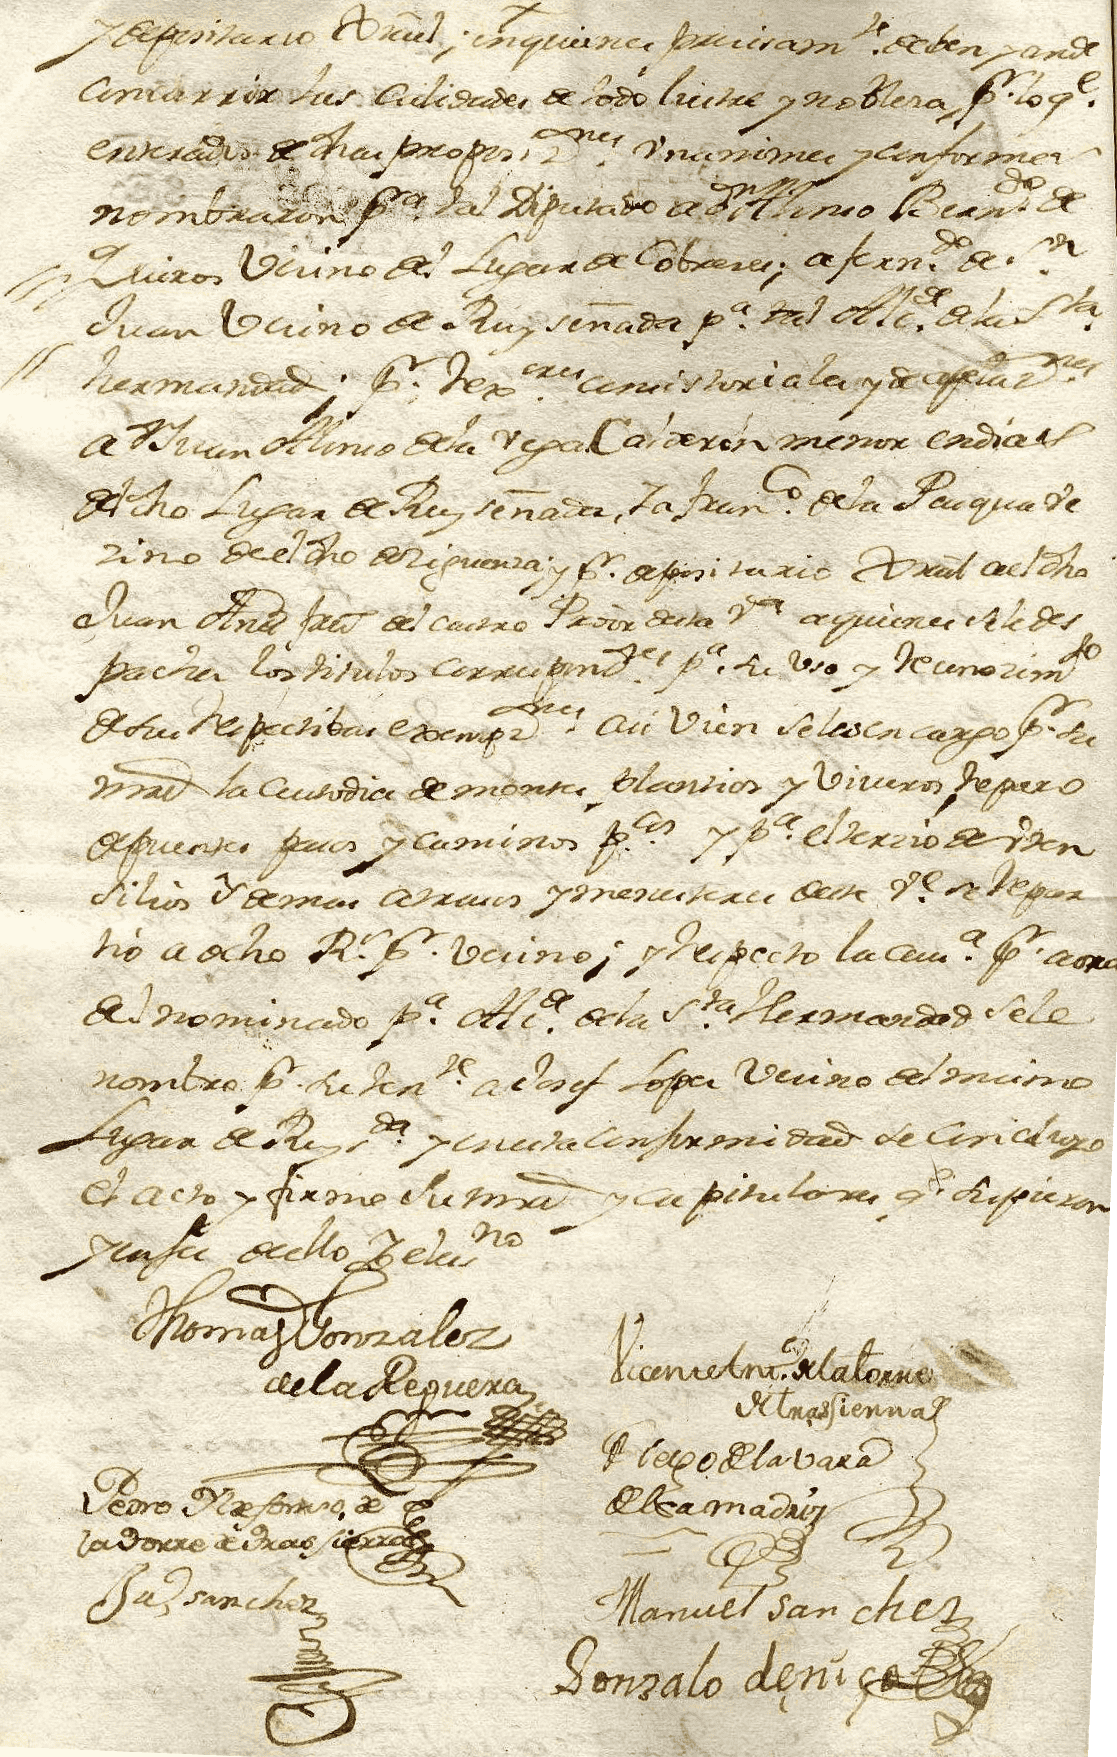 y depositario Xràl, en quienes precisamte. deben y ande
concurrir las calidades de todo lustre y nobleza, pr. lo qe.
enterados de dhas proposiznes. unanimes y conformes
nombraron pa. tal Diputado a Dn Antonio Berndo. de
Quiros Vecino del Lugar de Cobreces; a ferndo. de Sn.
Juan Vecino de Ruyseñada pa. tal Alcde. de la Sta.
hermandad; pr. consistoriales y de
a Dn Juan Antonio de la Vega Calderon menor en dias
del dho Lugar de Ruyseñada, y a Franco. de la Pasqua ve
zino de el dho de ziguenza; y pr. depositario Xràl a el dho
Juan del castro Vª a quienes se les des
pache los titulos correspondtes. pa. su uso y reconozimto
de sus respectibos exempznes. assi vien se les encargo pr. su
mrd la custodia de montes, plantios y Viveros, reparo
de puentes pasos y caminos pcos. y pa. el servizio de Vten
silios y demas atrasos y menesteres deste Ve. se repar
tio a ocho Rs. pr. vecino; y respecto la pr. aora
del nominado pa. Alcde. de la Sta. Hermandad se le
nombro pr. su tente. a Josef Lopez Vecino del mismo
Lugar de Ruysda. y en esta conformidad se concluyo
el acto y firmo su mrd y capitulares qe. supieron
y en fee de ello Yo el essno
Thomas Gonzalez
de la Reguera
Vicente Antº. de la torre
de trassierra
Pedro Ildefonso de
la torre de trassierra
Diego de la vara
de la madriz
sanchez
Manuel sanchez
Gonzalo de